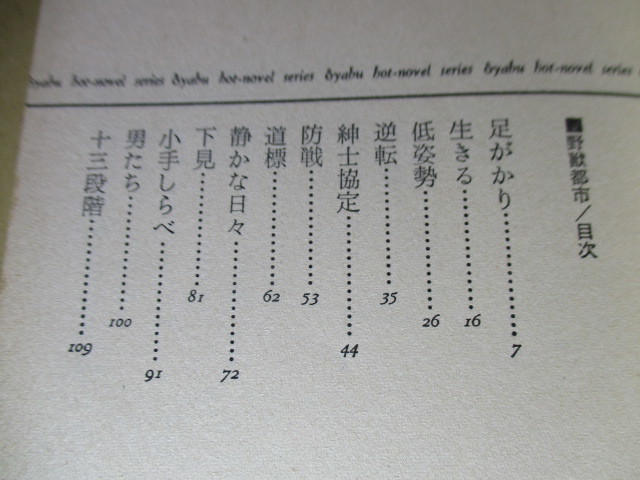 öyabu hot-novel series öyabu hot-novel series öyabu hot-novel series öyabu hot-novel series
■野獣都市/目次
足がかり……………7
生きる……………16
低姿勢……………26
逆転……………35
紳士協定……………44
防戦……………53
道標……………62
静かな日々……………72
下見……………81
小手しらべ……………91
男たち……………100
十三段階……………109